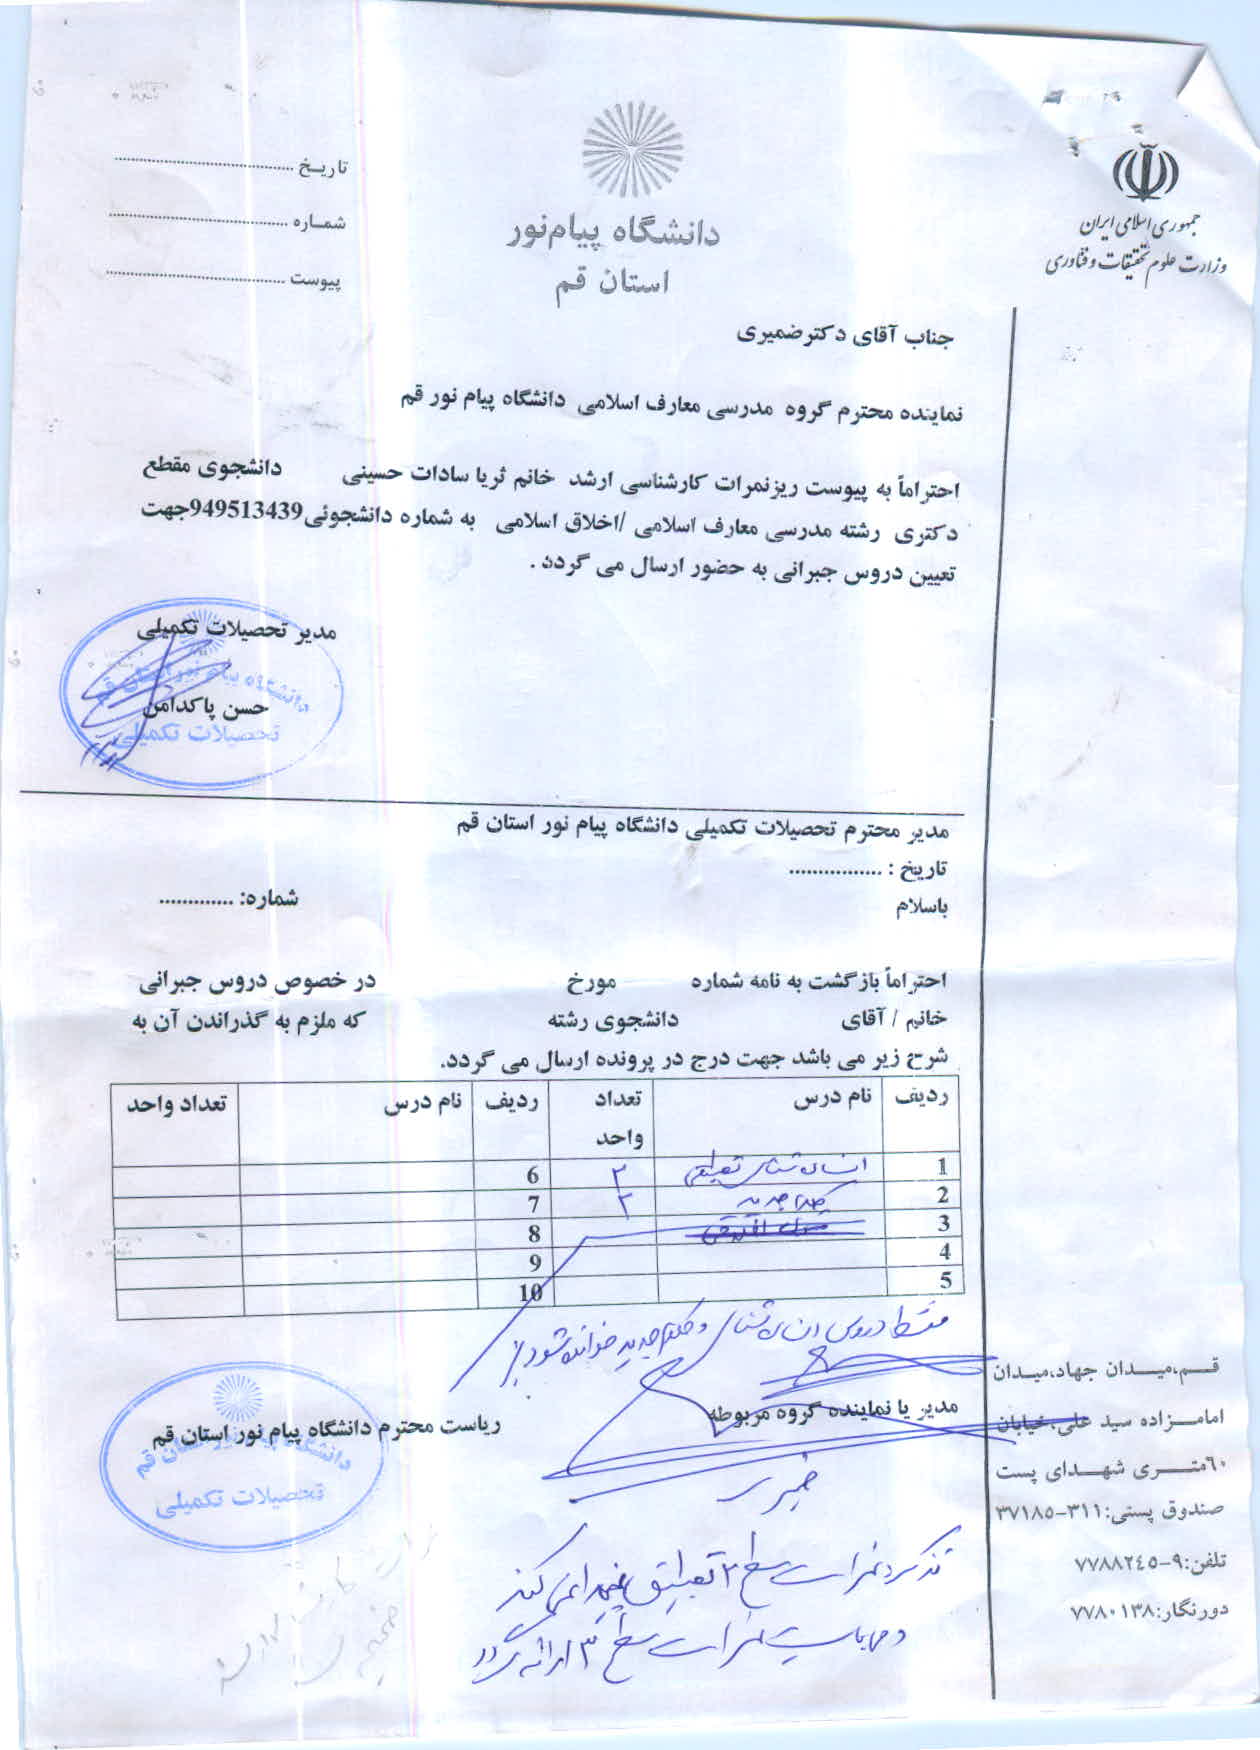 جمهوری اسلامی ایران
وزارت علوم تحقیقات و فناوری
دانشگاه پیام‌نور
استان قم
تاریخ ..........................
شماره ..........................
پیوست ..........................
جناب آقای دکترضمیری
نماینده محترم گروه مدرسی معارف اسلامی دانشگاه پیام نور قم
احتراماً به پیوست ریزنمرات کارشناسی ارشد خانم ثریا سادات حسینی دانشجوی مقطع
دکتری رشته مدرسی معارف اسلامی /اخلاق اسلامی به شماره دانشجوئی949513439جهت
تعیین دروس جبرانی به حضور ارسال می گردد .
مدیر تحصیلات تکمیلی
حسن پاکدامن
دانشگاه پیام نور استان قم
تحصیلات تکمیلی
مدیر محترم تحصیلات تکمیلی دانشگاه پیام نور استان قم
تاریخ : ................
شماره: .............
باسلام
احتراماً بازگشت به نامه شماره مورخ در خصوص دروس جبرانی
خانم / آقای دانشجوی رشته که ملزم به گذراندن آن به
شرح زیر می باشد جهت درج در پرونده ارسال می گردد.
ردیف نام درس تعداد واحد ردیف نام درس تعداد واحد
1 انسان شناسی تطبیقی ۲ 6
2 کلام جدید ۲ 7
3 8
4 9
5 10
فقط دروس انسان شناسی و کلام جدید خوانده شود
مدیر یا نماینده گروه مربوطه
ریاست محترم دانشگاه پیام نور استان قم
ضمیری
دانشگاه پیام نور استان قم
تحصیلات تکمیلی
نمرات سطح ۲ تطبیق پیدا نمی کند
و می بایست نمرات سطح ۳ ارائه گردد
قـــم،میـــدان جهاد،میدان
امامـــزاده سید علی،خیابان
٦٠متـــری شهـــدای پست
صندوق پستی:٣١١-٣٧١٨٥
تلفن:٩-٧٧٨٨٢٤٥
دورنگار:٧٧٨٠١٣٨